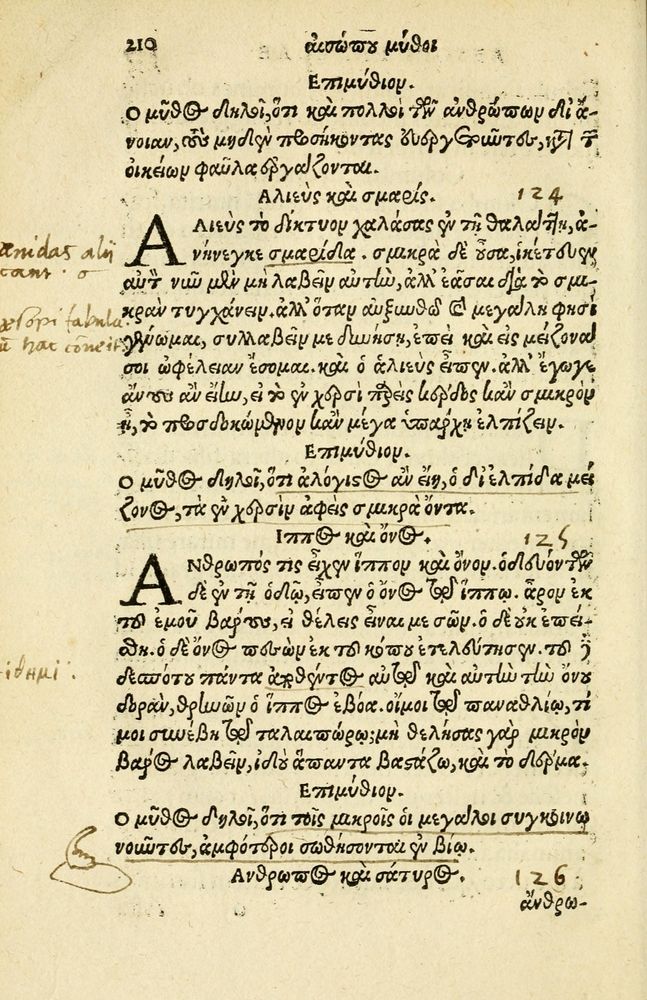 210 αἰσώπου μύθοι
Επιμύθιον.
Ο μῦθος δηλοῖ, ὅτι καὶ πολλοὶ τῶν ἀνθρώπων δι᾽ ἄ-
νοιαν, τοὺς μηδὲν προσήκοντας εὐεργετοῦντες, κατὰ τῶν
οἰκείων φαῦλα ἐργάζονται.
Αλιεὺς καὶ σμαρίς. 124
ΑΛιεὺς τὸ δίκτυον χαλάσας ἐν τῇ θαλάττῃ, ἀ-
νήνεγκε σμαρίδα. σμικρὰ δὲ οὖσα, ἱκέτευεν
αὐτὸν νῦν μὲν μὴ λαβεῖν αὐτὴν, ἀλλ᾽ ἐᾶσαι διὰ τὸ σμι-
κρὰν τυγχάνειν. ἀλλ᾽ ὅταν αὐξηνθῶ καὶ μεγάλη φησὶ
γένωμαι, συλλαβεῖν με δυνήσῃ, ἐπεὶ καὶ εἰς μείζονά
σοι ὠφέλειαν ἔσομαι. καὶ ὁ ἁλιεὺς εἶπεν. ἀλλ᾽ ἔγωγε
ἄνους ἂν εἴην, εἰ τὸ ἐν χερσὶ παρεὶς κέρδος κἂν σμικρὸν
ᾖ, τὸ προσδοκώμενον κἂν μέγα ὑπάρχῃ ἐλπίζειν.
Επιμύθιον.
Ο μῦθος δηλοῖ, ὅτι ἀλόγιστος ἂν εἴη, ὁ δι᾽ ἐλπίδα μεί
ζονος, τὰ ἐν χερσὶν ἀφεὶς σμικρὰ ὄντα.
Ιππος καὶ ὄνος. 125
ΑΝθρωπός τις εἶχεν ἵππον καὶ ὄνον. ὁδευόντων
δὲ ἐν τῇ ὁδῷ, εἶπεν ὁ ὄνος τῷ ἵππῳ. ἆρον ἐκ
τοῦ ἐμοῦ βάρους, εἰ θέλεις εἶναί με σῶν. ὁ δὲ οὐκ ἐπεί-
σθη. ὁ δὲ ὄνος πεσὼν ἐκ τοῦ κόπου ἐτελεύτησεν. τοῦ δὲ
δεσπότου πάντα ἐπιθέντος αὐτῷ καὶ αὐτὴν τὴν ὄνου
δορὰν, θρηνῶν ὁ ἵππος ἐβόα. οἴμοι τῷ παναθλίῳ, τί
μοι συνέβη τῷ ταλαιπώρῳ; μὴ θελήσας γὰρ μικρὸν
βάρος λαβεῖν, ἰδοὺ ἅπαντα βαστάζω, καὶ τὸ δέρμα.
Επιμύθιον.
Ο μῦθος δηλοῖ, ὅτι τοῖς μικροῖς οἱ μεγάλοι συγκοινω
νοῦντες, ἀμφότεροι σωθήσονται ἐν βίῳ.
Ανθρωπος καὶ σάτυρος. 126
ἄνθρω-